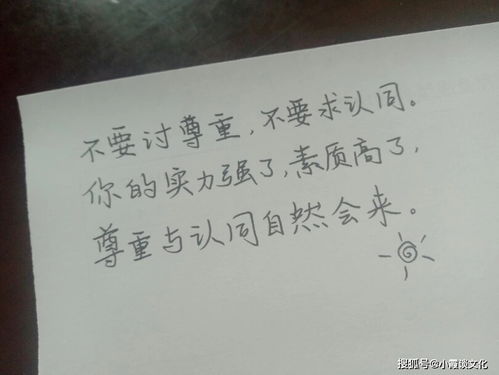 不要讨尊重,不要求认同。
你的实力强了,素质高了,
尊重与认同自然会来。
搜狐号@小霞谈文化